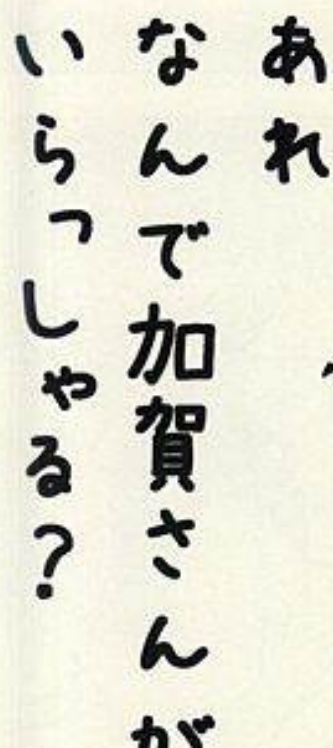 あれ
なんで加賀さんが
いらっしゃる?